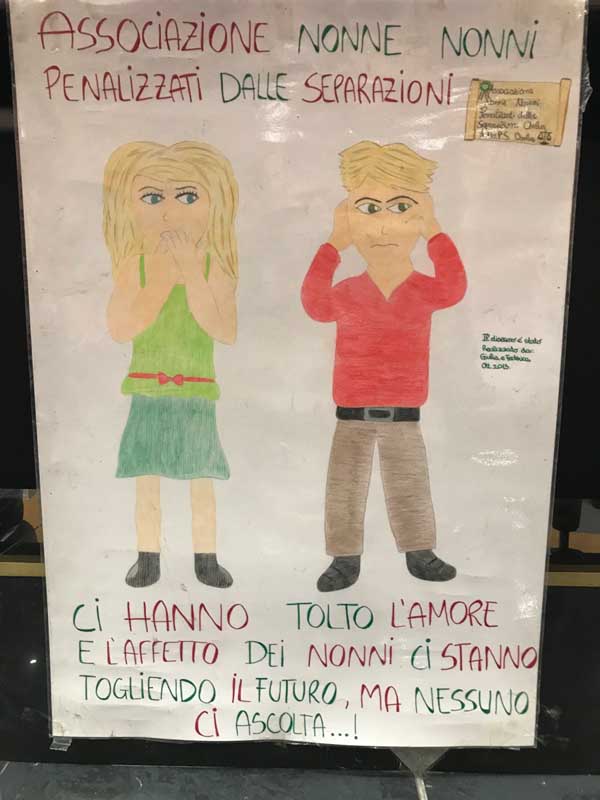 ASSOCIAZIONE NONNE NONNI
PENALIZZATI DALLE SEPARAZIONI
Associazione
Nonne Nonni
Penalizzati dalle
Separazioni Onlus
Onlus
Il disegno è stato
Realizzato da:
Giulia e Federica
CI HANNO TOLTO L'AMORE
E L'AFFETTO DEI NONNI CI STANNO
TOGLIENDO IL FUTURO, MA NESSUNO
CI ASCOLTA...!